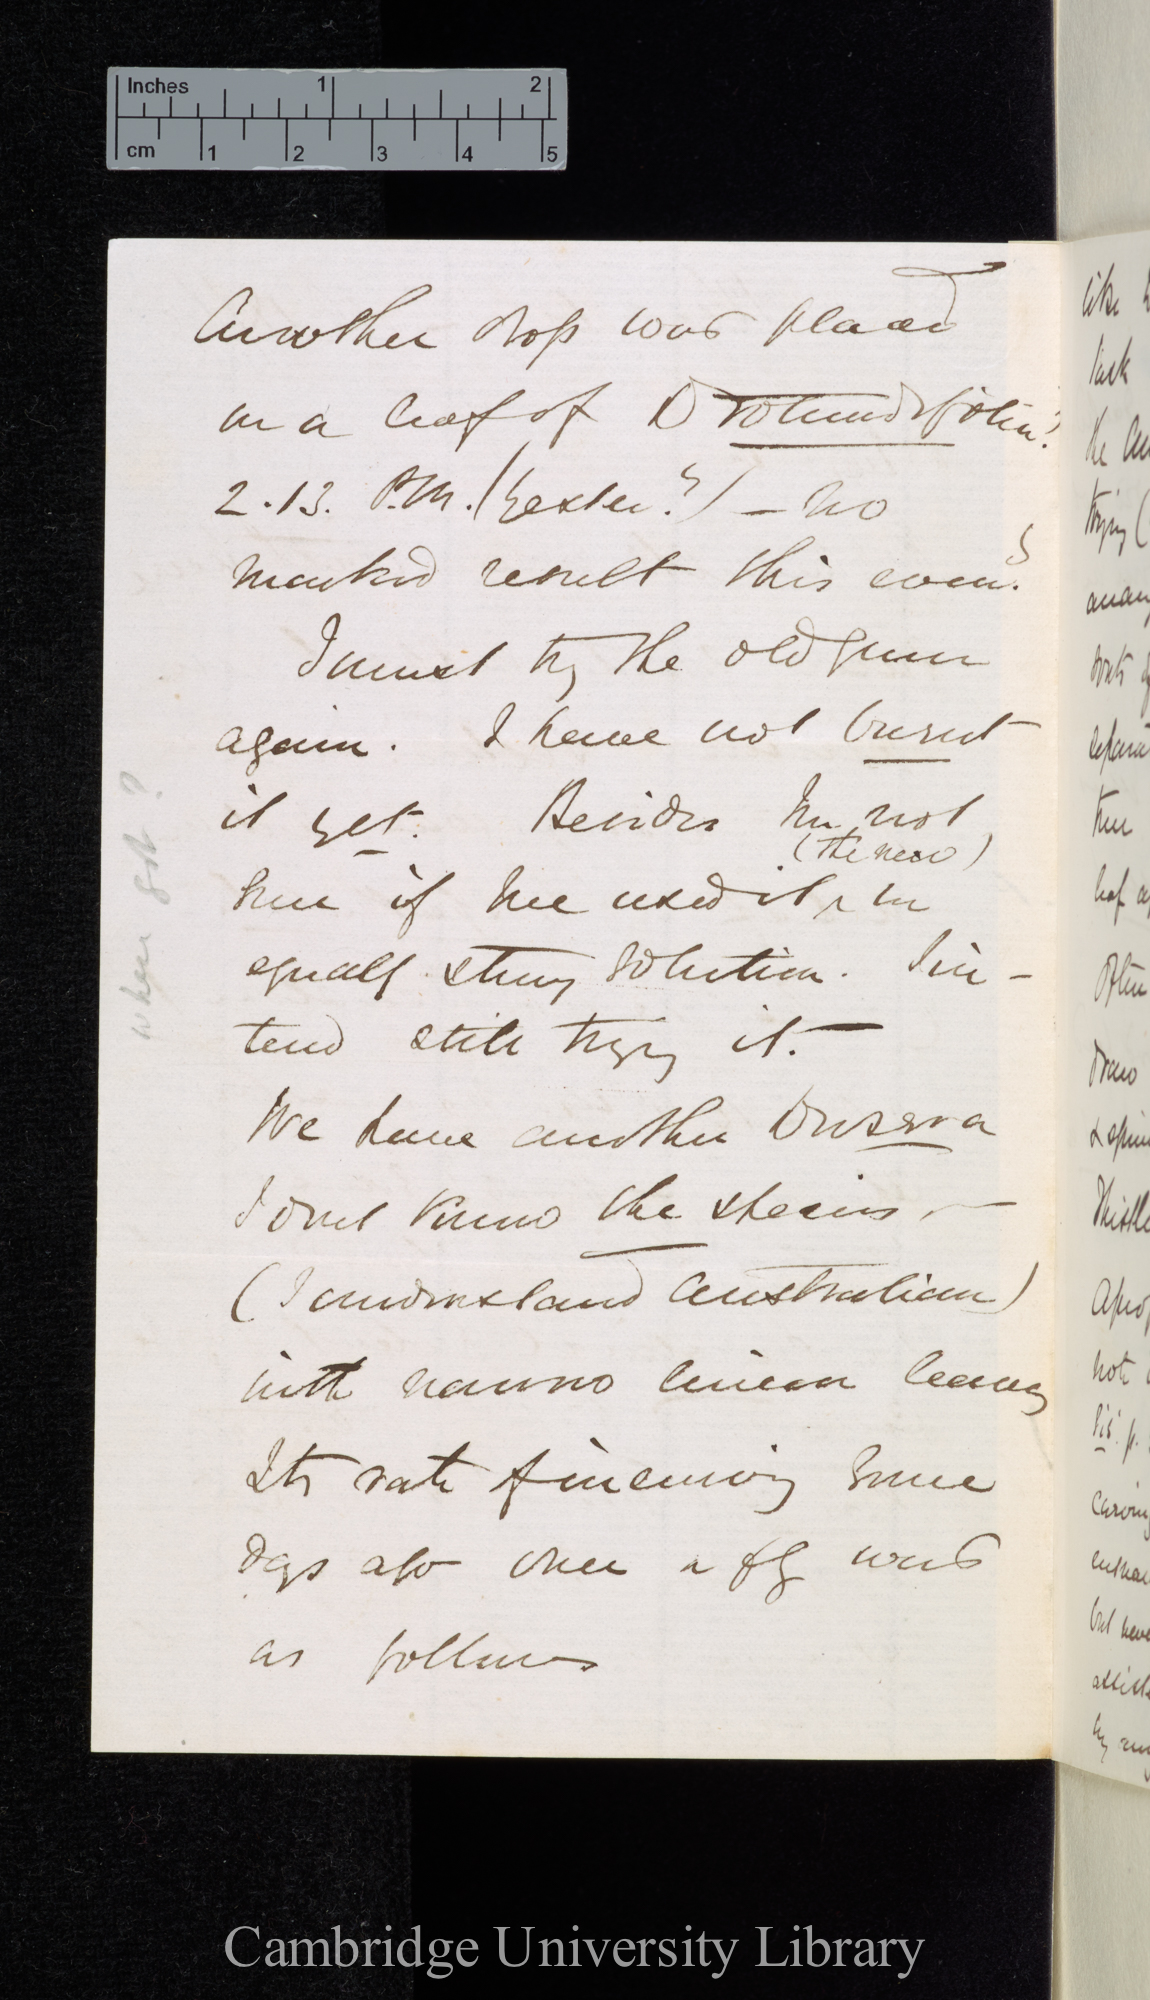 Inches 1 2
cm 1 2 3 4 5
Another drop was placed
on a leaf of D rotundifolia.
2.13. P.M. (yester.y) – no
marked result this eveng.
I must try the old gum
again. I have not burnt
it yet. Besides I'm not
(the new)
sure if we used it ‸ in
equally strong solution. I in-
tend still trying it. –
We have another Drosera
I dont know the species –
(I understand Australian)
with narrow linear leaves
Its rate of incurving some
days ago over a fly was
as follows
when got?
like
task
the
trying (
leaf
often
draw
Thistle
not
but never
Cambridge University Library